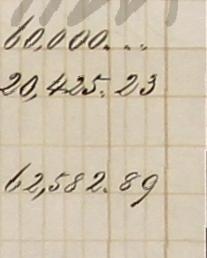 60,000...
20,425.23
62,582.89